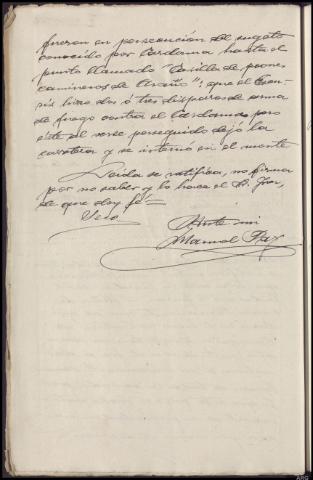 fueron en persecución del sugeto
conocido por Cardama hasta el
punto llamado "Casilla de peones
camineros de Araño"; que el
hizo dos ó tres disparos de arma
de fuego contra el Cardama, pero
éste al verse perseguido dejó la
carretera y se internó en el monte
Leida se ratifica, no firma
por no saber y lo hace el S. Juez,
de que doy fé=
Ante mi
Manuel Paz